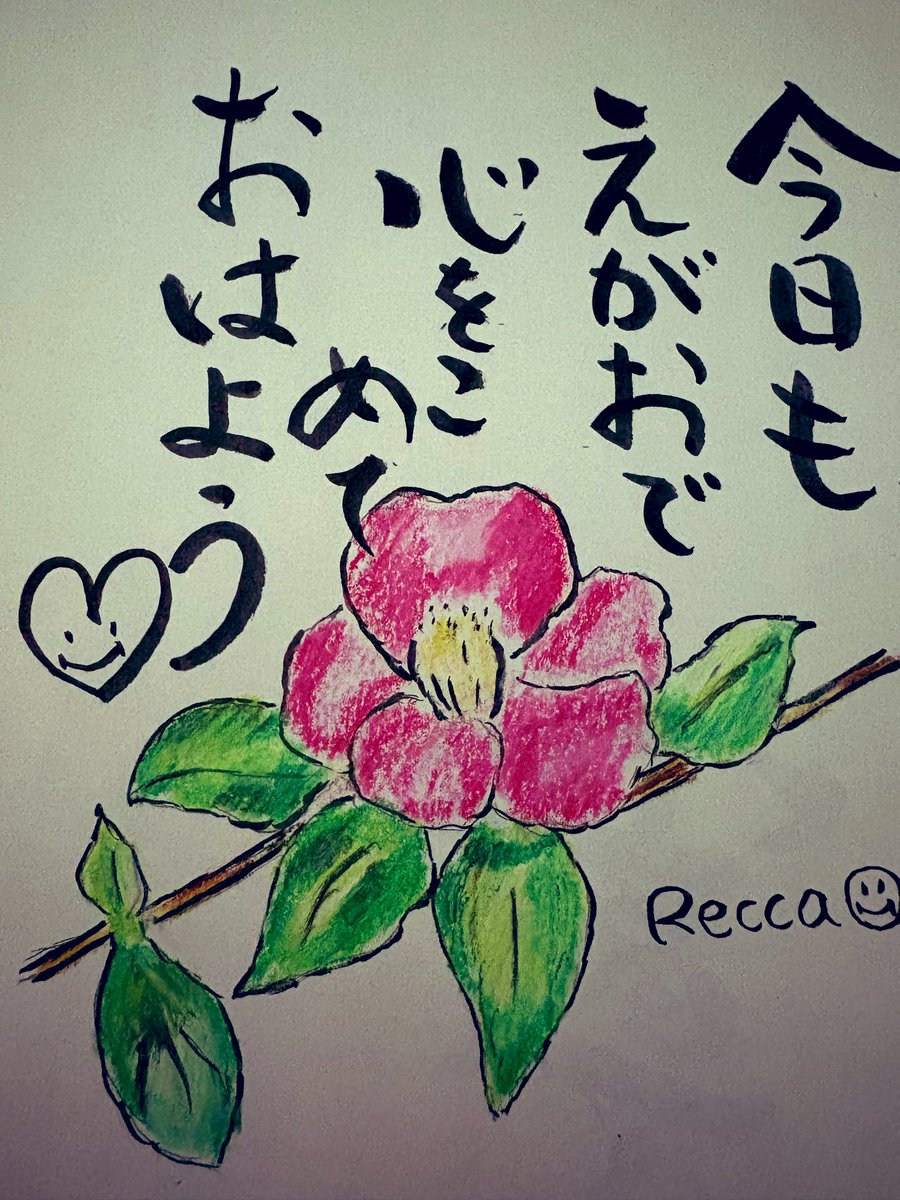 今日も
えがおで
心をこ
めて
おはよう
Recca